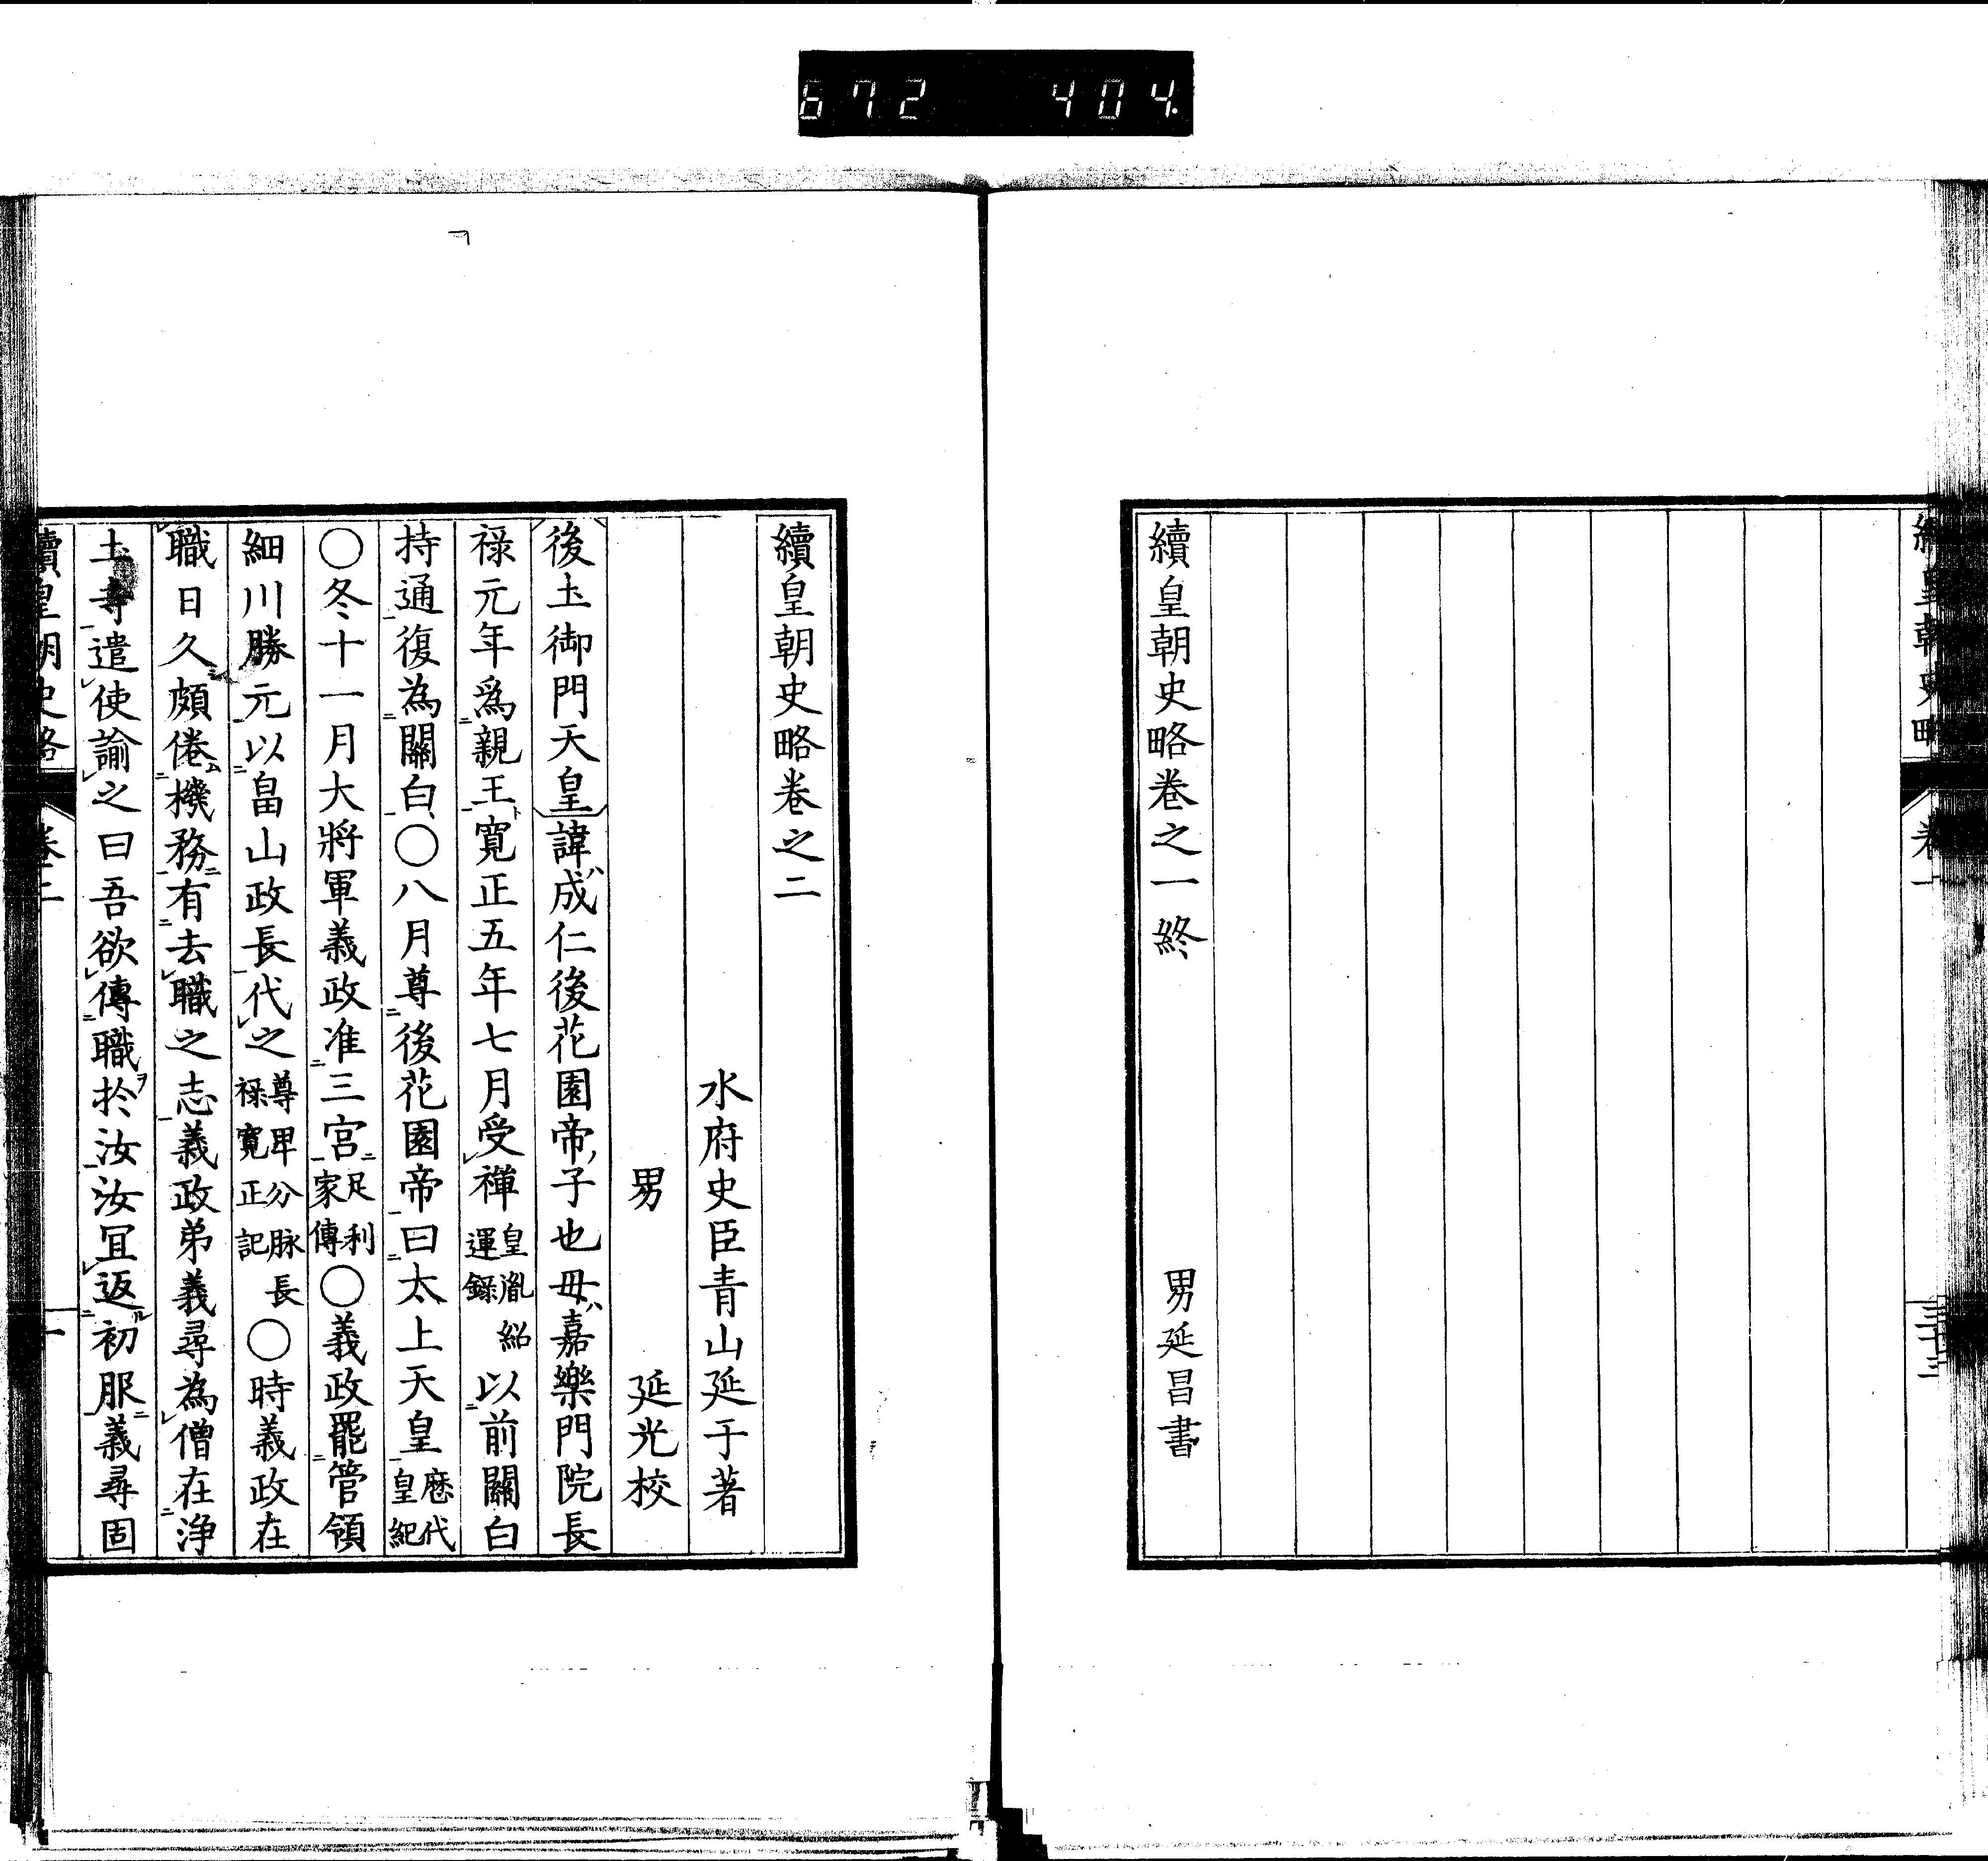 672 404.
續皇朝史略
卷一
三十三
續皇朝史略卷之一終
男延昌書
續皇朝史略卷之二
水府史臣青山延于著
男 延光校
後土御門天皇諱成仁後花園帝子也母嘉樂門院長
禄元年爲親王寛正五年七月受禪皇胤紹運錄以前關白
持通復為關白○八月尊後花園帝曰太上天皇歷代皇紀
○冬十一月大將軍義政准三宮足利家傳○義政罷管領
細川勝元以畠山政長代之尊卑分脉長禄寛正記○時義政在
職日久頗倦機務有去職之志義政弟義尋為僧在浄
土寺遣使諭之曰吾欲傳職於汝汝冝返初服義尋固
續皇朝史略
卷二
一